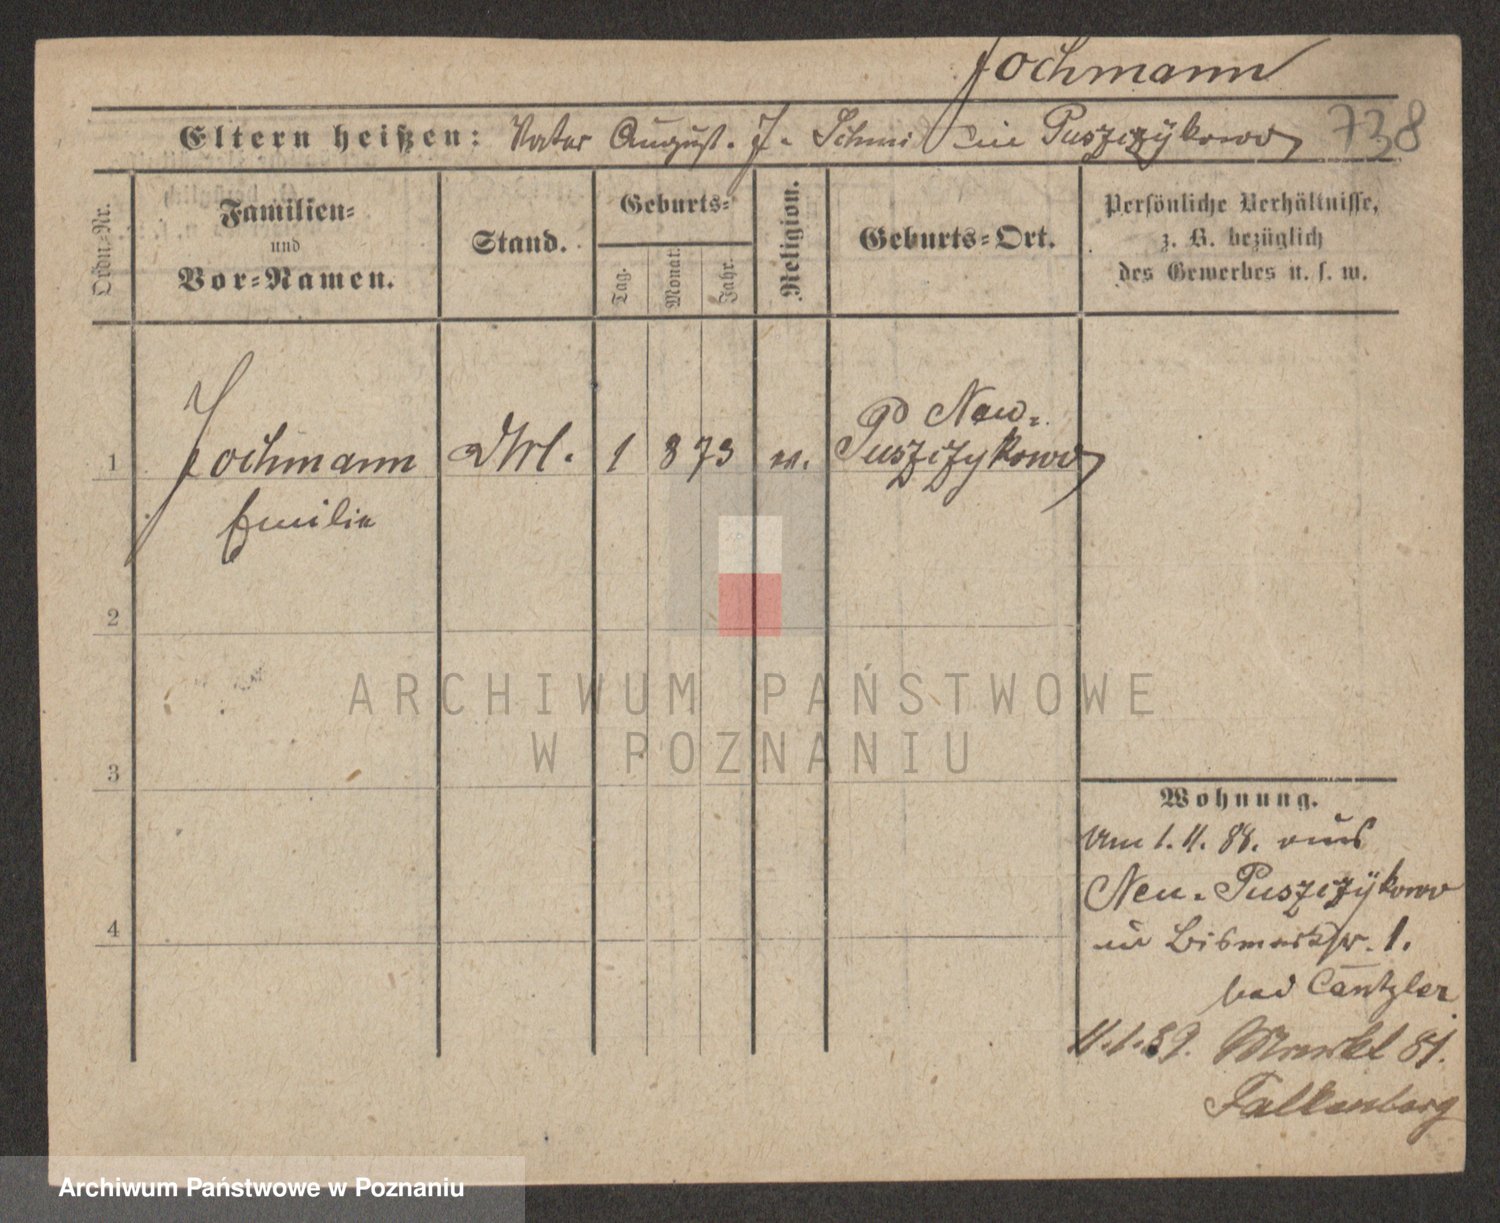 Jochmann
Eltern heißen: Vater August. J. Schmi in Puszczykowo 738
Ordn.-Nr.
Familien-
und
Vor-Namen.
Stand.
Geburts-
Tag.
Monat.
Jahr.
Religion.
Geburts-Ort.
Persönliche Verhältnisse,
z. B. bezüglich
des Gewerbes u. s. w.
1 Jochmann 1 8 73 Neu-
Puszczykowo
Emilie
2
3
4
ARCHIWUM PAŃSTWOWE
W POZNANIU
Wohnung.
Am 1. 11. 88. aus
Neu-Puszczykowo
in Bismarkstr. 1.
bei Cantzler
11.1.89. Markt 81.
Falkenberg
Archiwum Państwowe w Poznaniu